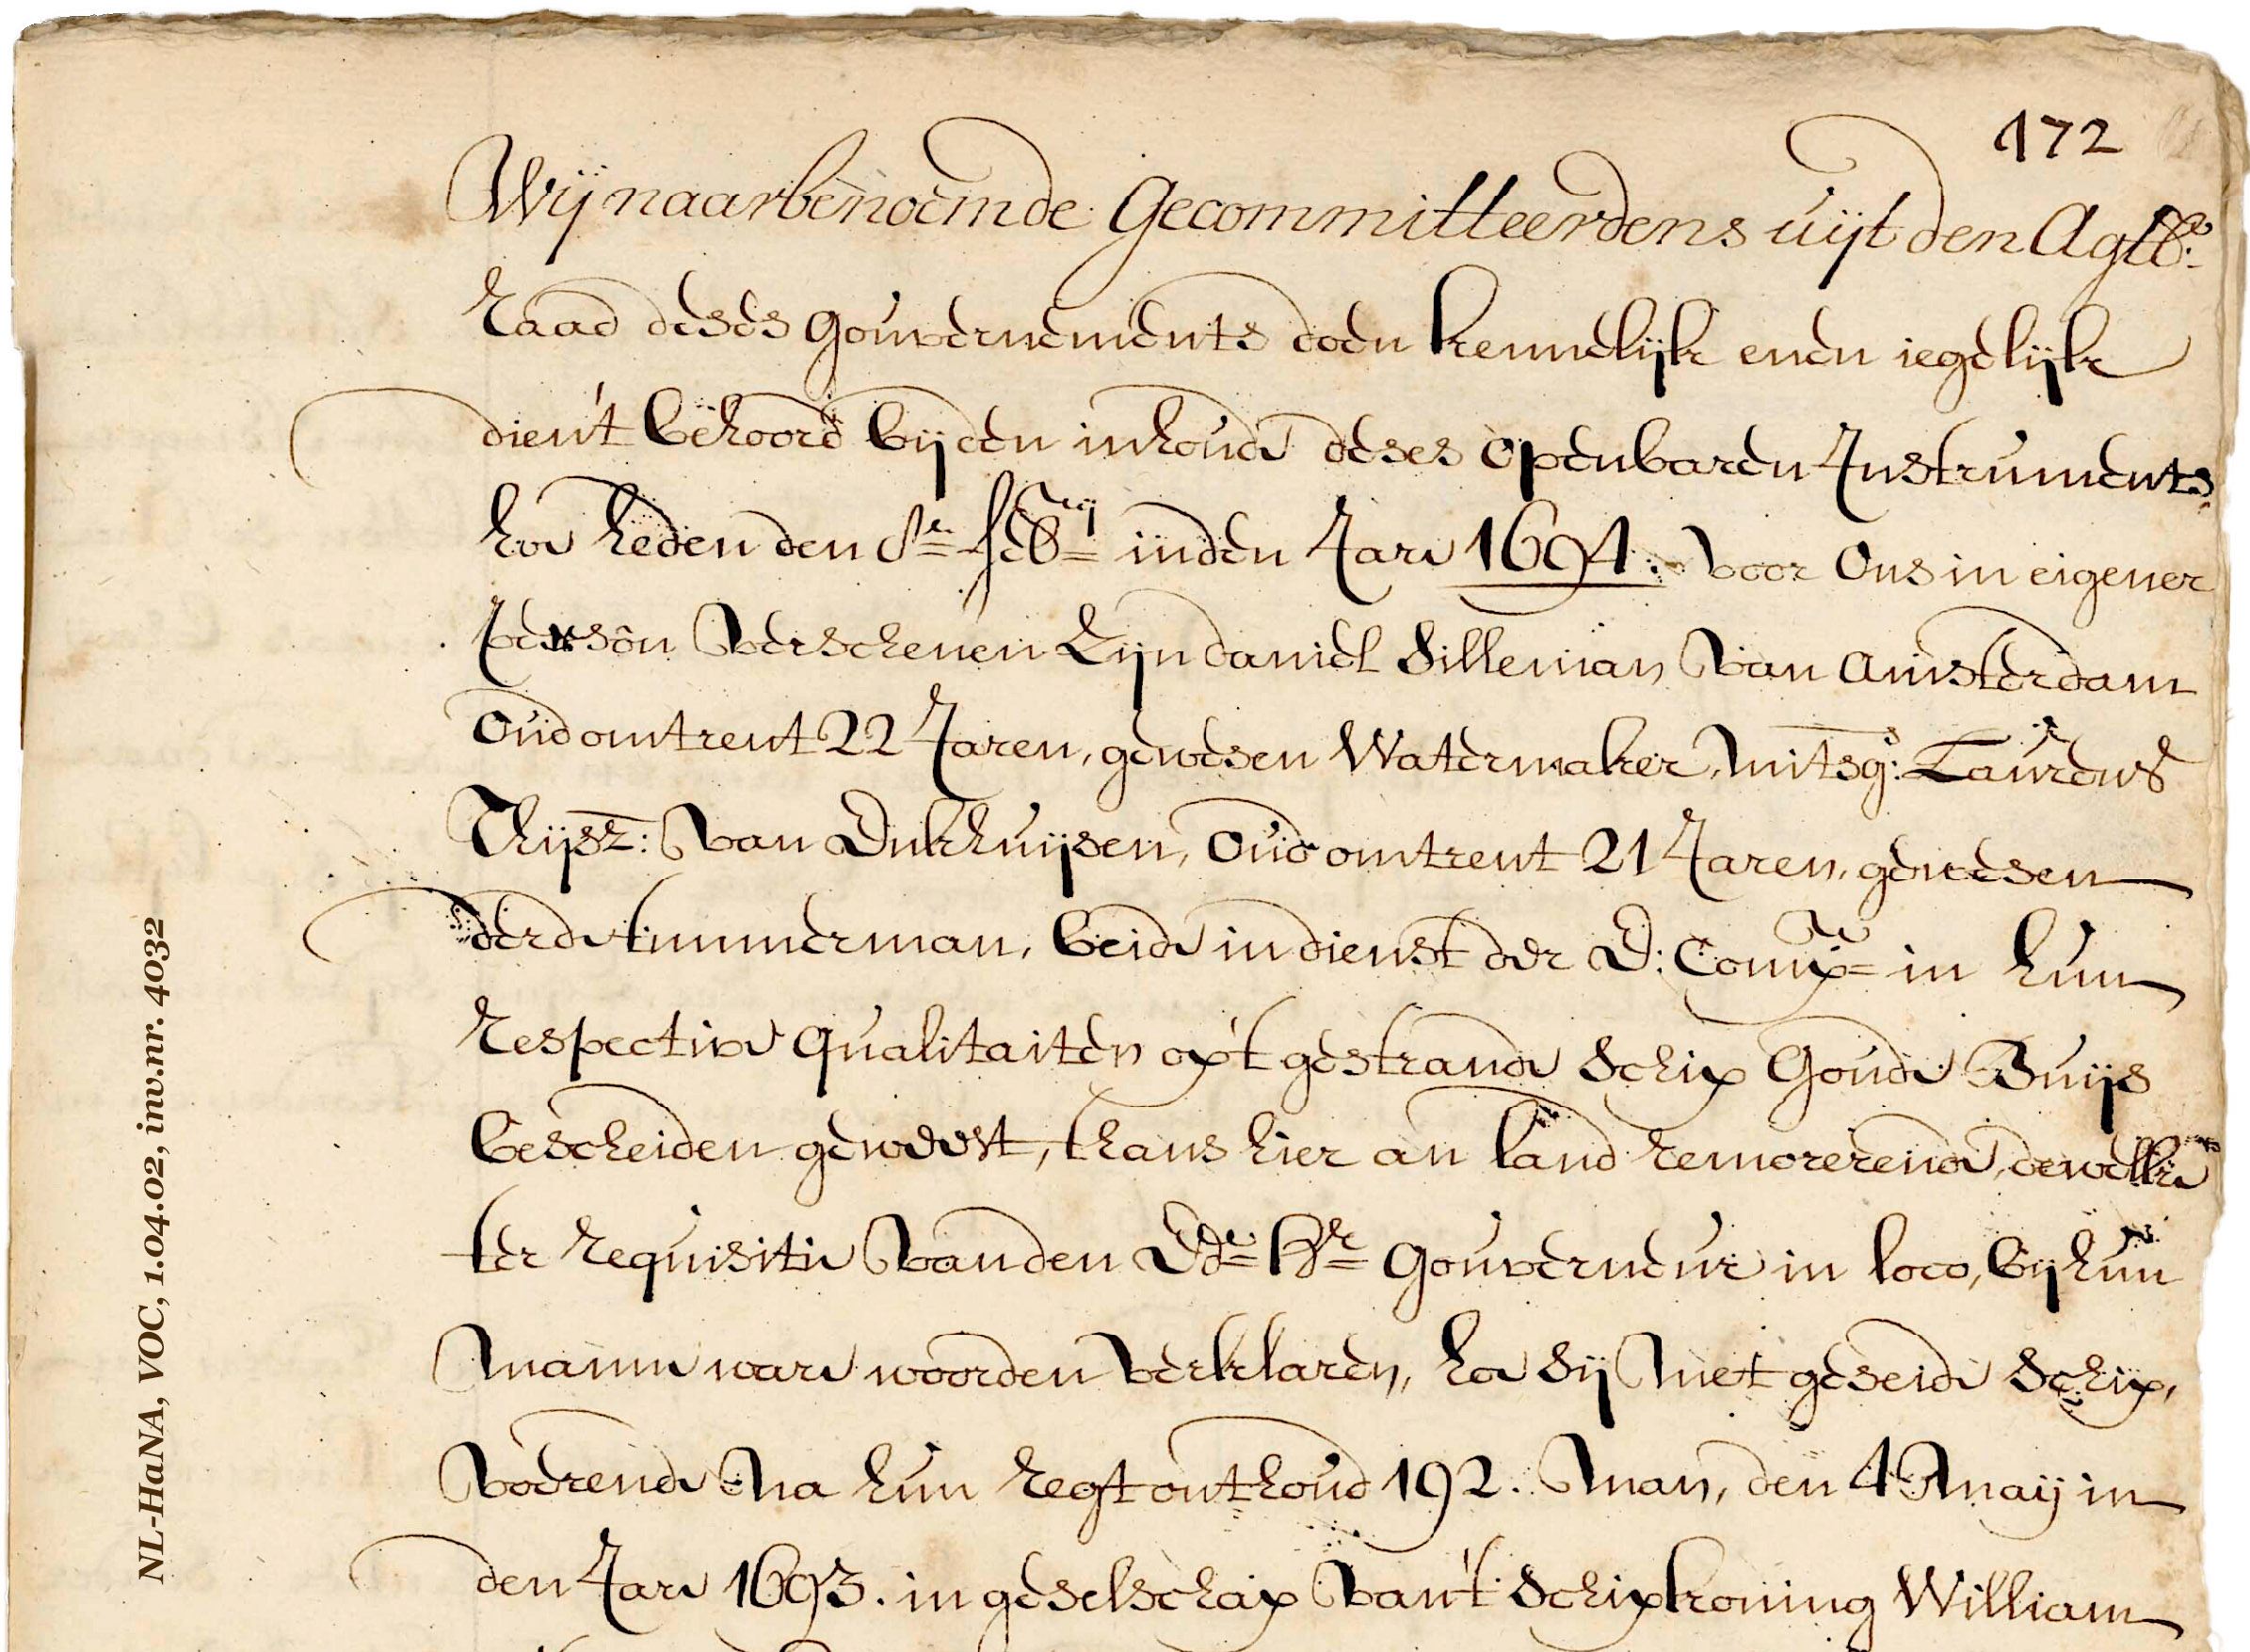 172
Wij naarbenoemde Gecommitteerdens uijt den Agtb:e
Raad deses Gouvernements doen kennelijk enen iegelijk
dien't behoord bij den inhoud deses openbaren Instruments,
hoe heden den 8e feb:rij inden Jare 1694. voor Ons in eigener
persôn verschenen Lijn daniel Silleman van Amsterdam
Oud omtrent 22 Jaren, gewesen Watermaker, mitsg:s Laurens
Thijsz: van Enkhuijsen, Oud omtrent 21 Jaren, gewesen
derde timmerman, beide in dienst der E: Comp:e in hun
respective qualitaiten op't gestrande Schip Goude Buijs
bescheiden geweest, thans hier an land remorerende, dewelke
ter requisitie vanden Ed:e Hr Gouverneur in loco, bij hun
manne ware woorden verklaren, hoe sij met geseide Schip,
voerende na hun regt onthoud 192. man, den 4 Maij in
den Jare 1693. in geselschap van't Schip koning William
NL-HaNA, VOC, 1.04.02, inv.nr. 4032